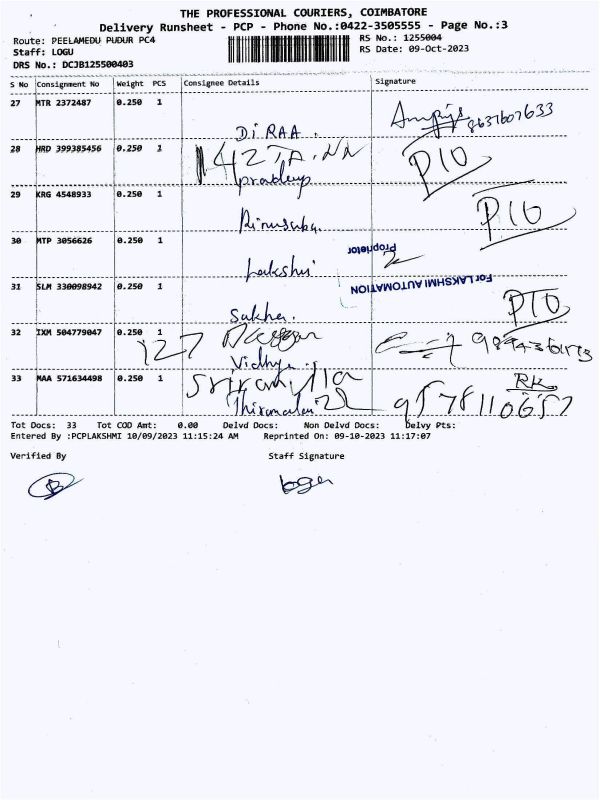 THE PROFESSIONAL COURIERS, COIMBATORE
Delivery Runsheet - PCP - Phone No.:0422-3505555 - Page No.:3
Route: PEELAMEDU PUDUR PC4
RS No.: 1255004
Staff: LOGU
RS Date: 09-Oct-2023
DRS No.: DCJB125500403
S No Consignment No Weight PCS Consignee Details Signature
27 MTR 2372487 0.250 1
8637607633
Di RAA.
28 HRD 399385456 0.250 1
pradeep
29 KRG 4548933 0.250 1
30 MTP 3056626 0.250 1
Proprietor
Lakshmi
31 SLM 330098942 0.250 1
For LAKSHMI AUTOMATION
Sakthi.
32 IXM 504779047 0.250 1
127
Vidhya.
33 MAA 571634498 0.250 1
Sriram Villa
RK
Thirumalai
9578110657
Tot Docs: 33 Tot COD Amt: 0.00 Delvd Docs: Non Delvd Docs: Delvy Pts:
Entered By :PCPLAKSHMI 10/09/2023 11:15:24 AM Reprinted On: 09-10-2023 11:17:07
Verified By Staff Signature